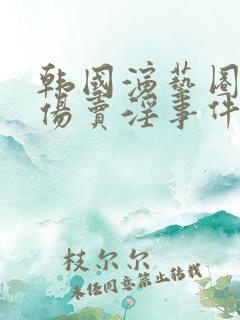 韩国演藝圈
傷賣淫事件
枝尔尔
未经同意禁止转载